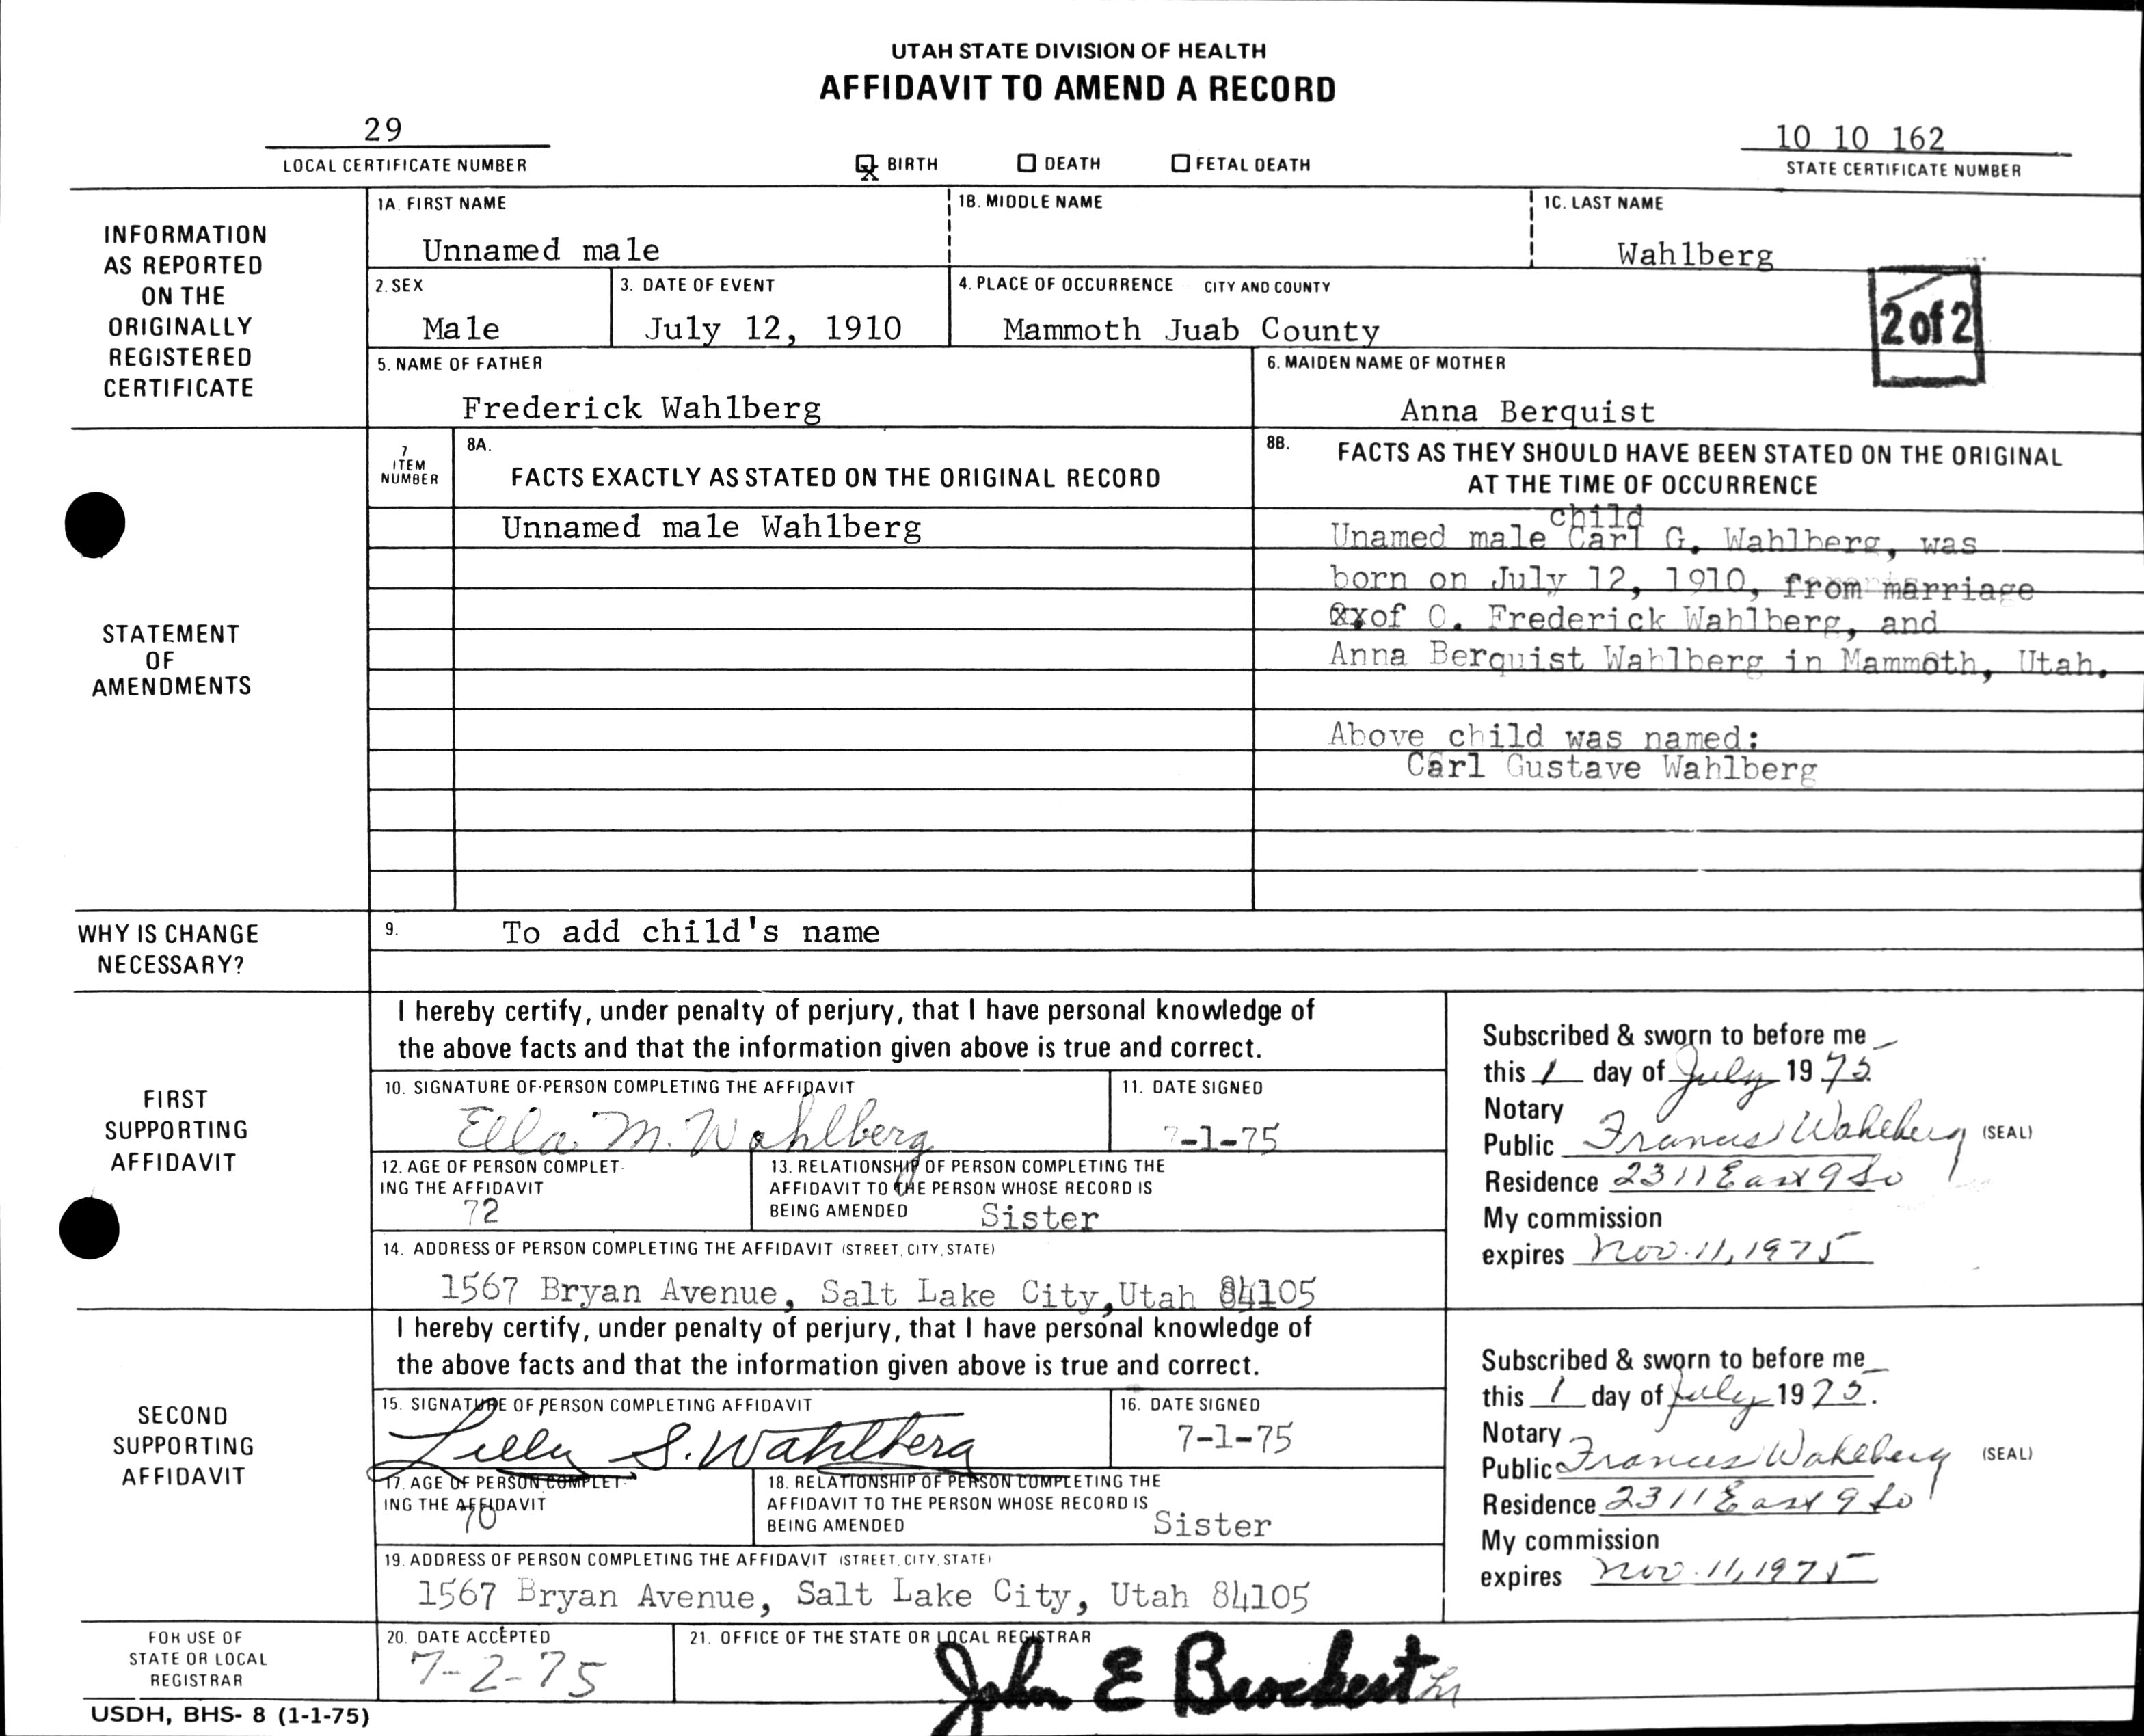 UTAH STATE DIVISION OF HEALTH
AFFIDAVIT TO AMEND A RECORD
29
LOCAL CERTIFICATE NUMBER
X BIRTH DEATH FETAL DEATH
10 10 162
STATE CERTIFICATE NUMBER
INFORMATION
AS REPORTED
ON THE
ORIGINALLY
REGISTERED
CERTIFICATE
1A. FIRST NAME 1B. MIDDLE NAME 1C. LAST NAME
Unnamed male Wahlberg
2. SEX 3. DATE OF EVENT 4. PLACE OF OCCURRENCE CITY AND COUNTY
Male July 12, 1910 Mammoth Juab County
2 of 2
5. NAME OF FATHER 6. MAIDEN NAME OF MOTHER
Frederick Wahlberg Anna Berquist
STATEMENT
OF
AMENDMENTS
7
ITEM
NUMBER
8A.
FACTS EXACTLY AS STATED ON THE ORIGINAL RECORD
8B. FACTS AS THEY SHOULD HAVE BEEN STATED ON THE ORIGINAL
AT THE TIME OF OCCURRENCE
Unnamed male Wahlberg
child
Unamed male Carl G. Wahlberg, was
born on July 12, 1910, from marriage
xxof O. Frederick Wahlberg, and
Anna Berquist Wahlberg in Mammoth, Utah.
Above child was named:
Carl Gustave Wahlberg
WHY IS CHANGE
NECESSARY?
9. To add child's name
FIRST
SUPPORTING
AFFIDAVIT
I hereby certify, under penalty of perjury, that I have personal knowledge of
the above facts and that the information given above is true and correct.
10. SIGNATURE OF PERSON COMPLETING THE AFFIDAVIT 11. DATE SIGNED
Ella M. Wahlberg 7-1-75
12. AGE OF PERSON COMPLET-
ING THE AFFIDAVIT
72
13. RELATIONSHIP OF PERSON COMPLETING THE
AFFIDAVIT TO THE PERSON WHOSE RECORD IS
BEING AMENDED Sister
14. ADDRESS OF PERSON COMPLETING THE AFFIDAVIT (STREET, CITY, STATE)
1567 Bryan Avenue, Salt Lake City, Utah 84105
Subscribed & sworn to before me
this 1 day of July 1975
Notary
Public Frances Wahlberg (SEAL)
Residence 2311 East 9 So
My commission
expires Nov. 11, 1975
SECOND
SUPPORTING
AFFIDAVIT
I hereby certify, under penalty of perjury, that I have personal knowledge of
the above facts and that the information given above is true and correct.
15. SIGNATURE OF PERSON COMPLETING AFFIDAVIT 16. DATE SIGNED
Lilly S. Wahlberg 7-1-75
17. AGE OF PERSON COMPLET-
ING THE AFFIDAVIT
70
18. RELATIONSHIP OF PERSON COMPLETING THE
AFFIDAVIT TO THE PERSON WHOSE RECORD IS
BEING AMENDED Sister
19. ADDRESS OF PERSON COMPLETING THE AFFIDAVIT (STREET, CITY, STATE)
1567 Bryan Avenue, Salt Lake City, Utah 84105
Subscribed & sworn to before me
this 1 day of July 1975.
Notary
Public Frances Wahlberg (SEAL)
Residence 2311 East 9 So
My commission
expires Nov. 11, 1975
FOR USE OF
STATE OR LOCAL
REGISTRAR
20. DATE ACCEPTED 21. OFFICE OF THE STATE OR LOCAL REGISTRAR
7-2-75 John E Brockert
USDH, BHS- 8 (1-1-75)